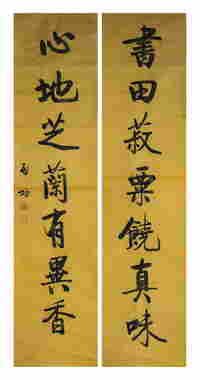 書田菽粟饒真味
心地芝蘭有異香
啟功